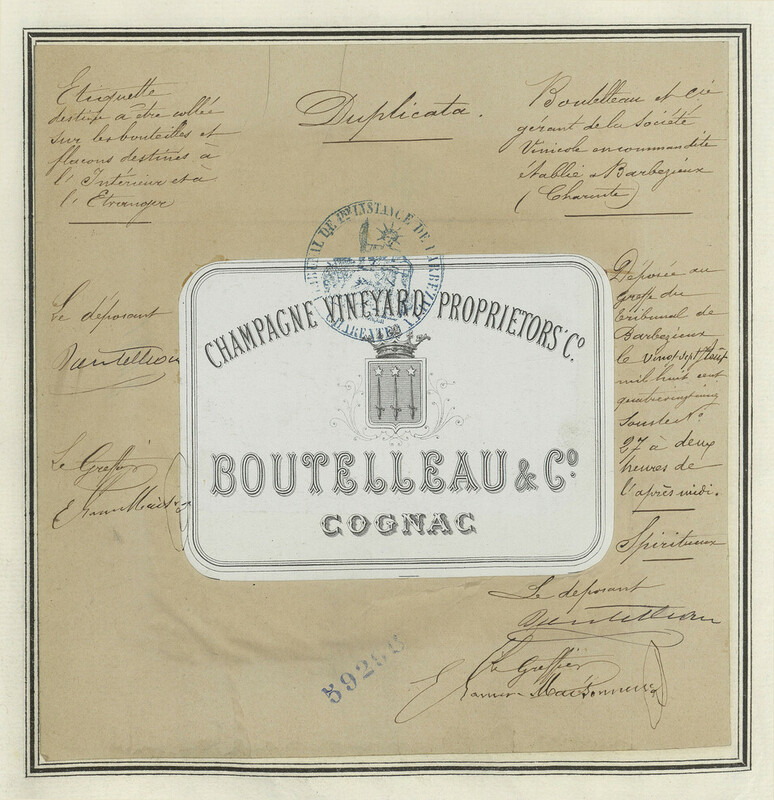 Etiquette
destiné à être collée
sur les bouteilles et
flacons destinés à
l'Intérieur et à
l'Etranger
Duplicata.
Boutelleau et Cie
gérant de la Société
Vinicole en commandite
établie à Barbezieux
(Charente)
TRIBUNAL DE 1RE INSTANCE DE BARBEZIEUX
CHARENTE
CHAMPAGNE VINEYARD PROPRIETORS' Co.
BOUTELLEAU & Co.
COGNAC
Le déposant
Boutelleau
Le Greffier
Déposée au
greffe du
tribunal de
Barbezieux
le vingt sept Août
mil huit cent
quatrevingt cinq
sous le No
27 à deux
heures de
l'après midi.
Spiritueux
Le déposant
Boutelleau
Le Greffier